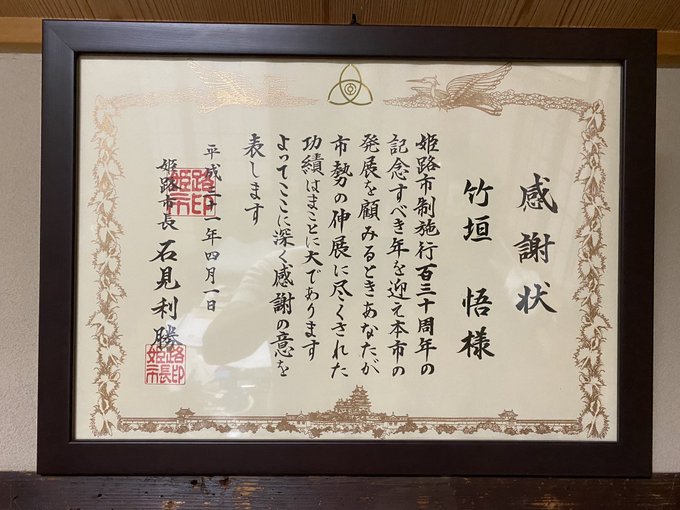 感謝状
竹垣 悟様
姫路市制施行百三十周年の
記念すべき年を迎え本市の
発展を顧みるときあなたが
市勢の伸展に尽くされた
功績はまことに大であります
よってここに深く感謝の意を
表します
平成三十一年四月一日
姫路市長 石見利勝
姫路市印
姫路市長印